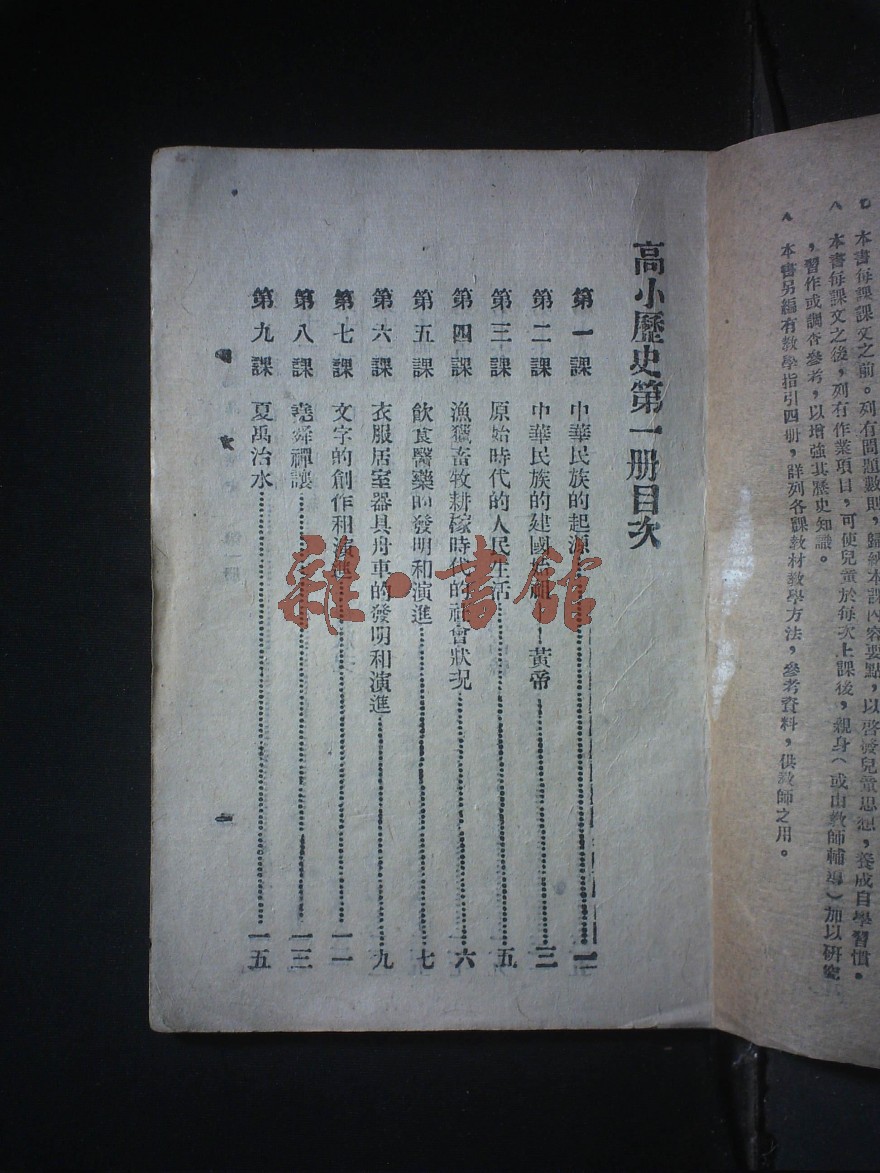 七 本書每課課文之前。列有問題數則，歸納本課內容要點，以啓發兒童思想，養成自學習慣。
八 本書每課文之後，列有作業項目，可使兒童於每次上課後，親身（或由教師輔導）加以研究
，習作或調查參考，以增強其歷史知識。
本書另編有教學指引四册，詳列各課教材教學方法，參考資料，供教師之用。
高小歷史第一册目次
第一課 中華民族的起源
第二課 中華民族的建國始祖——黃帝……三
第三課 原始時代的人民生活……五
第四課 漁獵畜牧耕稼時代的社會狀況……六
第五課 飲食醫藥的發明和演進……七
第六課 衣服居室器具舟車的發明和演進……九
第七課 文字的創作和演進……一一
第八課 堯舜禪讓……一三
第九課 夏禹治水……一五
一
雜·書館